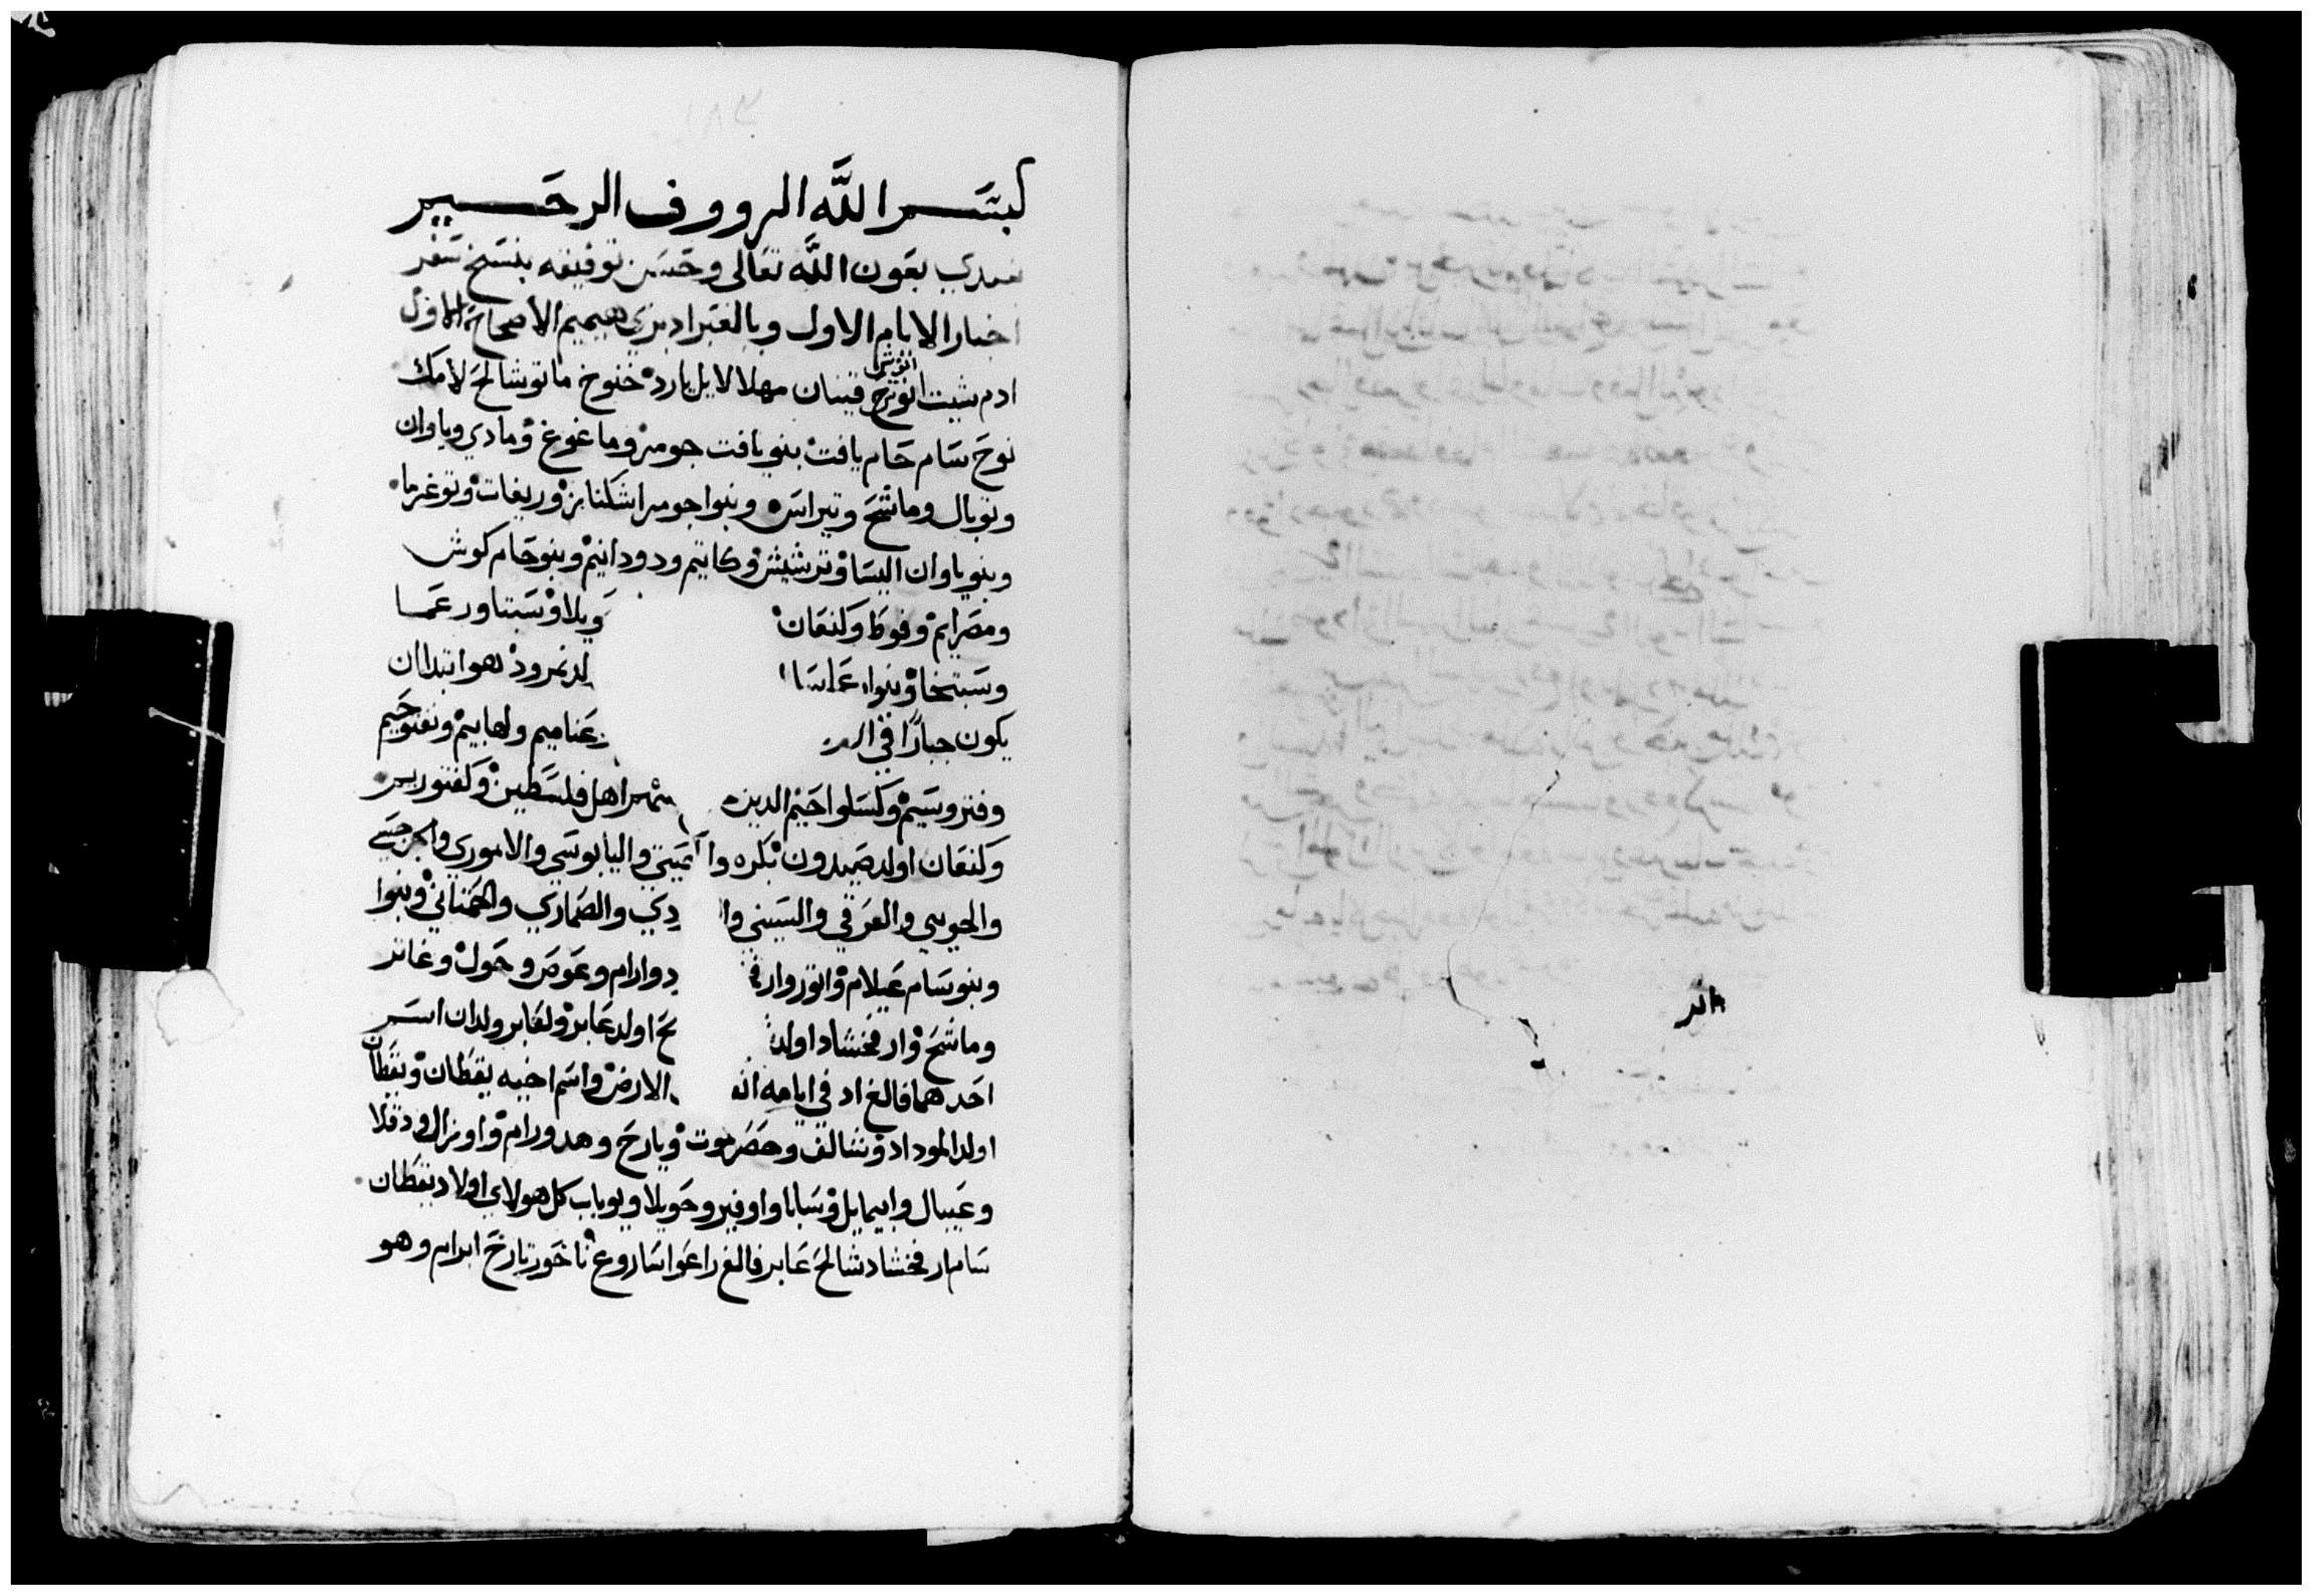 بسم الله الرووف الرحيم
نبتدي بعون الله تعالى وحسن توفيقه بنسخ سفر
اخبار الايام الاول وبالعبراد بري هيميم الاصحاح الاول
انوش
ادم شيت انوخ قينان مهلالايل يارد خنوخ ماتوشالح لامك
نوح سام حام يافت بنو يافت جومر وماغوغ ومادي وياوان
وتوبال وماشخ وتيراس وبنوا جومر اشكناز وريفات وتوغرما
وبنو ياوان اليسا وترشيش وكاتيم ودودانيم وبنو حام كوش
ومصرايم وفوط وكنعان ويلا وسبتا ورعما
وسبتخا وبنوا عماسا لد نمرود هو ابتدا ان
يكون جبارًا في عناميم ولهابيم ونفتوحيم
وفتروسيم وكسلواحيم الدين اهل فلسطين وكفتوريم
وكنعان اولد صيدون بكره وا تي واليابوسي والاموري والجرجسي
والحوي والعرقي والسيني وا دي والصماري والحمتاني وبنوا
وبنو سام عيلام واتور وارف د وارام وعوص وحول وغاتر
وماشخ وارفخشاد اولد لح اولد عابر ولعابر ولدان اسم
احدهما فالغ اد في ايامه الارض واسم اخيه يقطان ويقطان
اولد الموداد وشالف وحضرموت ويارح وهدورام واوزال ودقلا
وعيبال وابيمايل وسابا واوفير وحويلا ويوباب كل هولاي اولاد يقطان
سام ارفخشاد شالح عابر فالغ راعوا ساروغ ناخور تارخ ابرام وهو